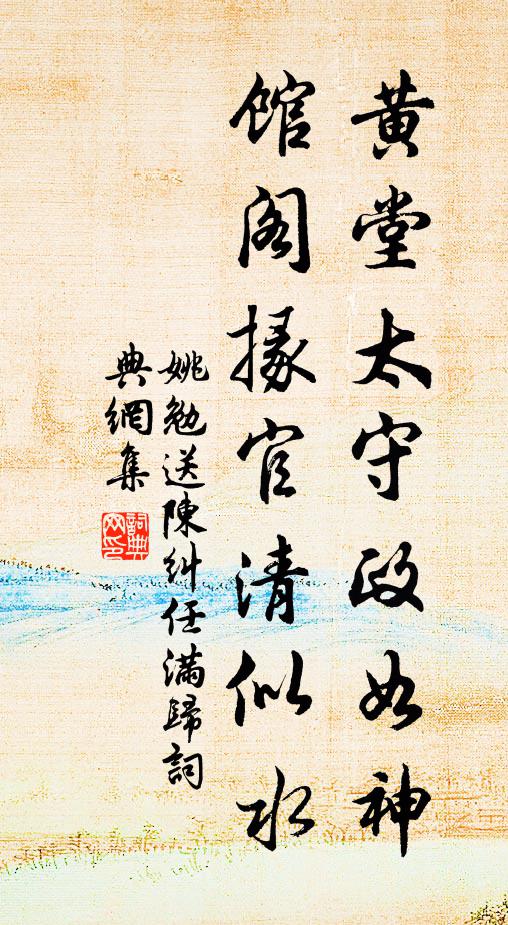 黄堂太守政如神
馆阁掾官清似水
姚勉送陳糾任滿歸詞
典網集
詞典
网印